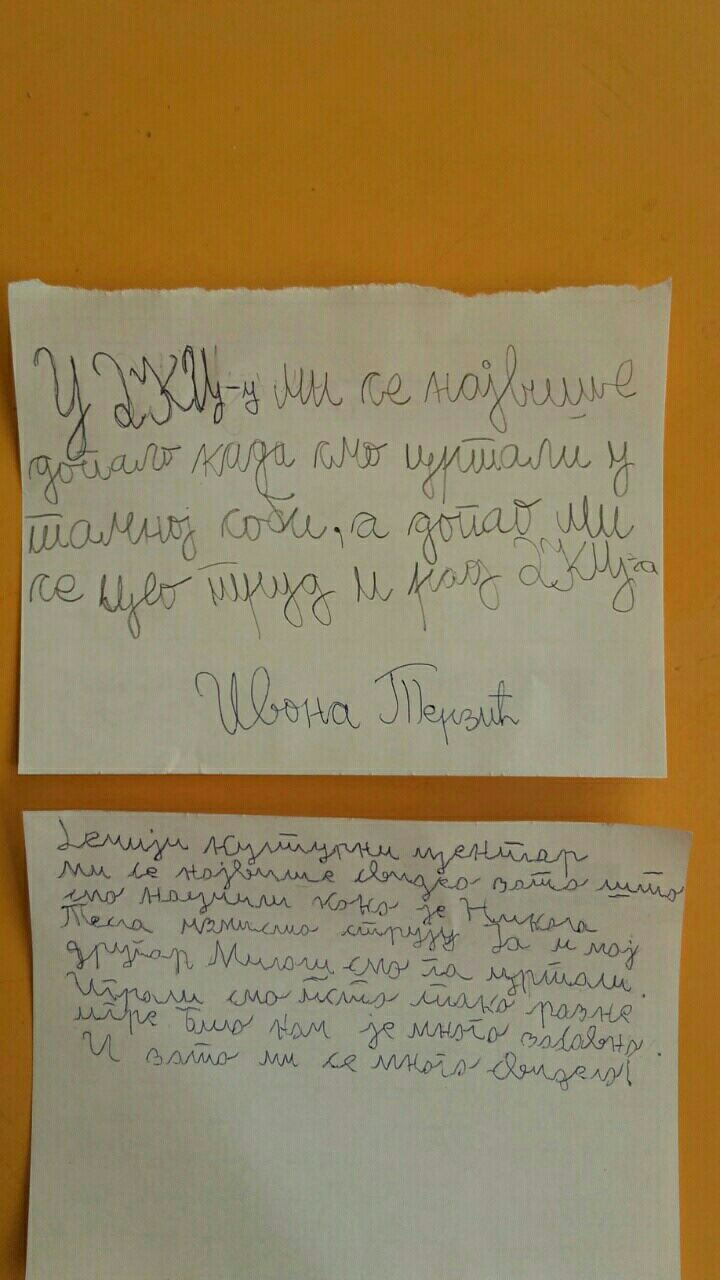 У ДКЦ-у ми се највише
допало када смо цртали у
тамној соби, а допао ми
се цео труд и рад ДКЦ-а
Ивона Терзић
Дечији културни центар
ми се највише свидео зато што
смо научили како је Никола
Тесла измислио струју Ја и мој
другар Милош смо га цртали.
Играли смо исто тако разне
игре било нам је много забавно.
И зато ми се много свидело!